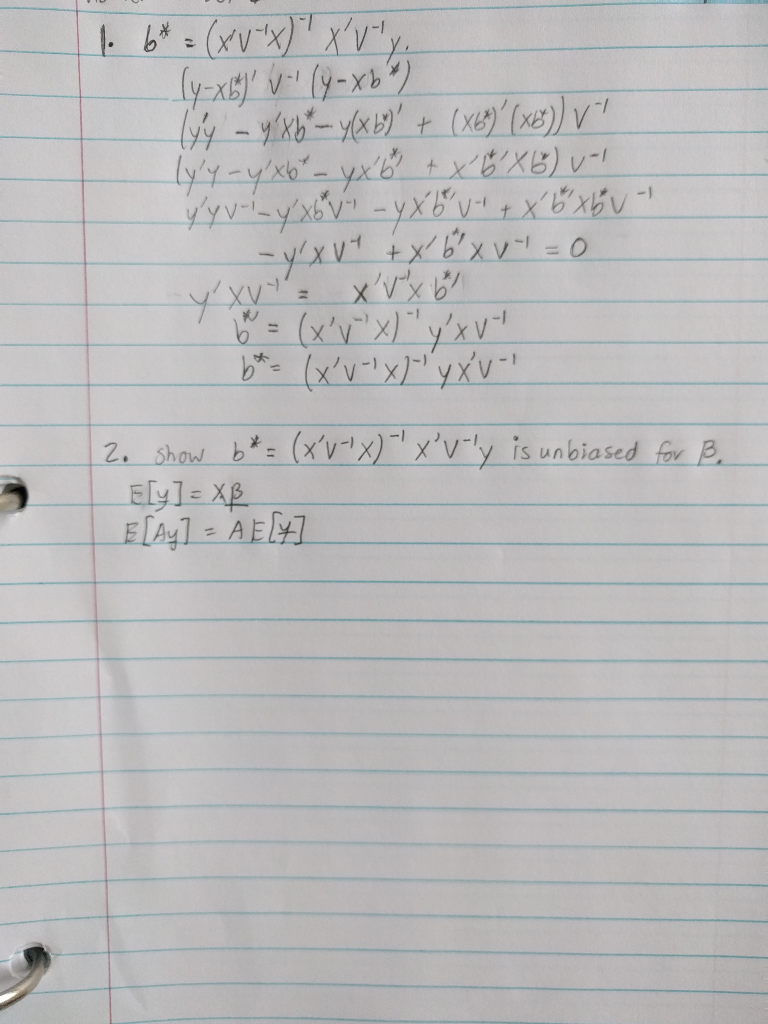 1. b* = (x'v⁻¹x)⁻¹ x'v⁻¹y.
(y-xb*)' v⁻¹ (y-xb*)
(y'y - y'xb* - y(xb*)' + (xb*)'(xb*)) v⁻¹
(y'y - y'xb* - yx'b*' + x'b*'xb*) v⁻¹
y'yv⁻¹ - y'xb*v⁻¹ - yx'b*'v⁻¹ + x'b*'xb*v⁻¹
- y'xv⁻¹ + x'b*'xv⁻¹ = 0
y'xv⁻¹ = x'v⁻¹xb*'
b*' = (x'v⁻¹x)⁻¹ y'xv⁻¹
b* = (x'v⁻¹x)⁻¹ yx'v⁻¹
2. show b* = (x'v⁻¹x)⁻¹ x'v⁻¹y is unbiased for β.
E[y] = Xβ
E[Ay] = A E[y]